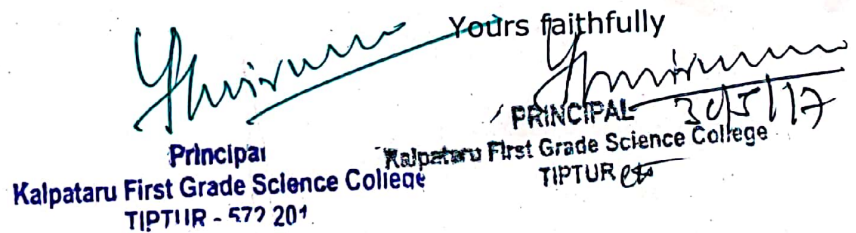 Yours faithfully
PRINCIPAL 30/5/17
Kalpataru First Grade Science College
TIPTUR
Principal
Kalpataru First Grade Science College
TIPTUR - 572 201